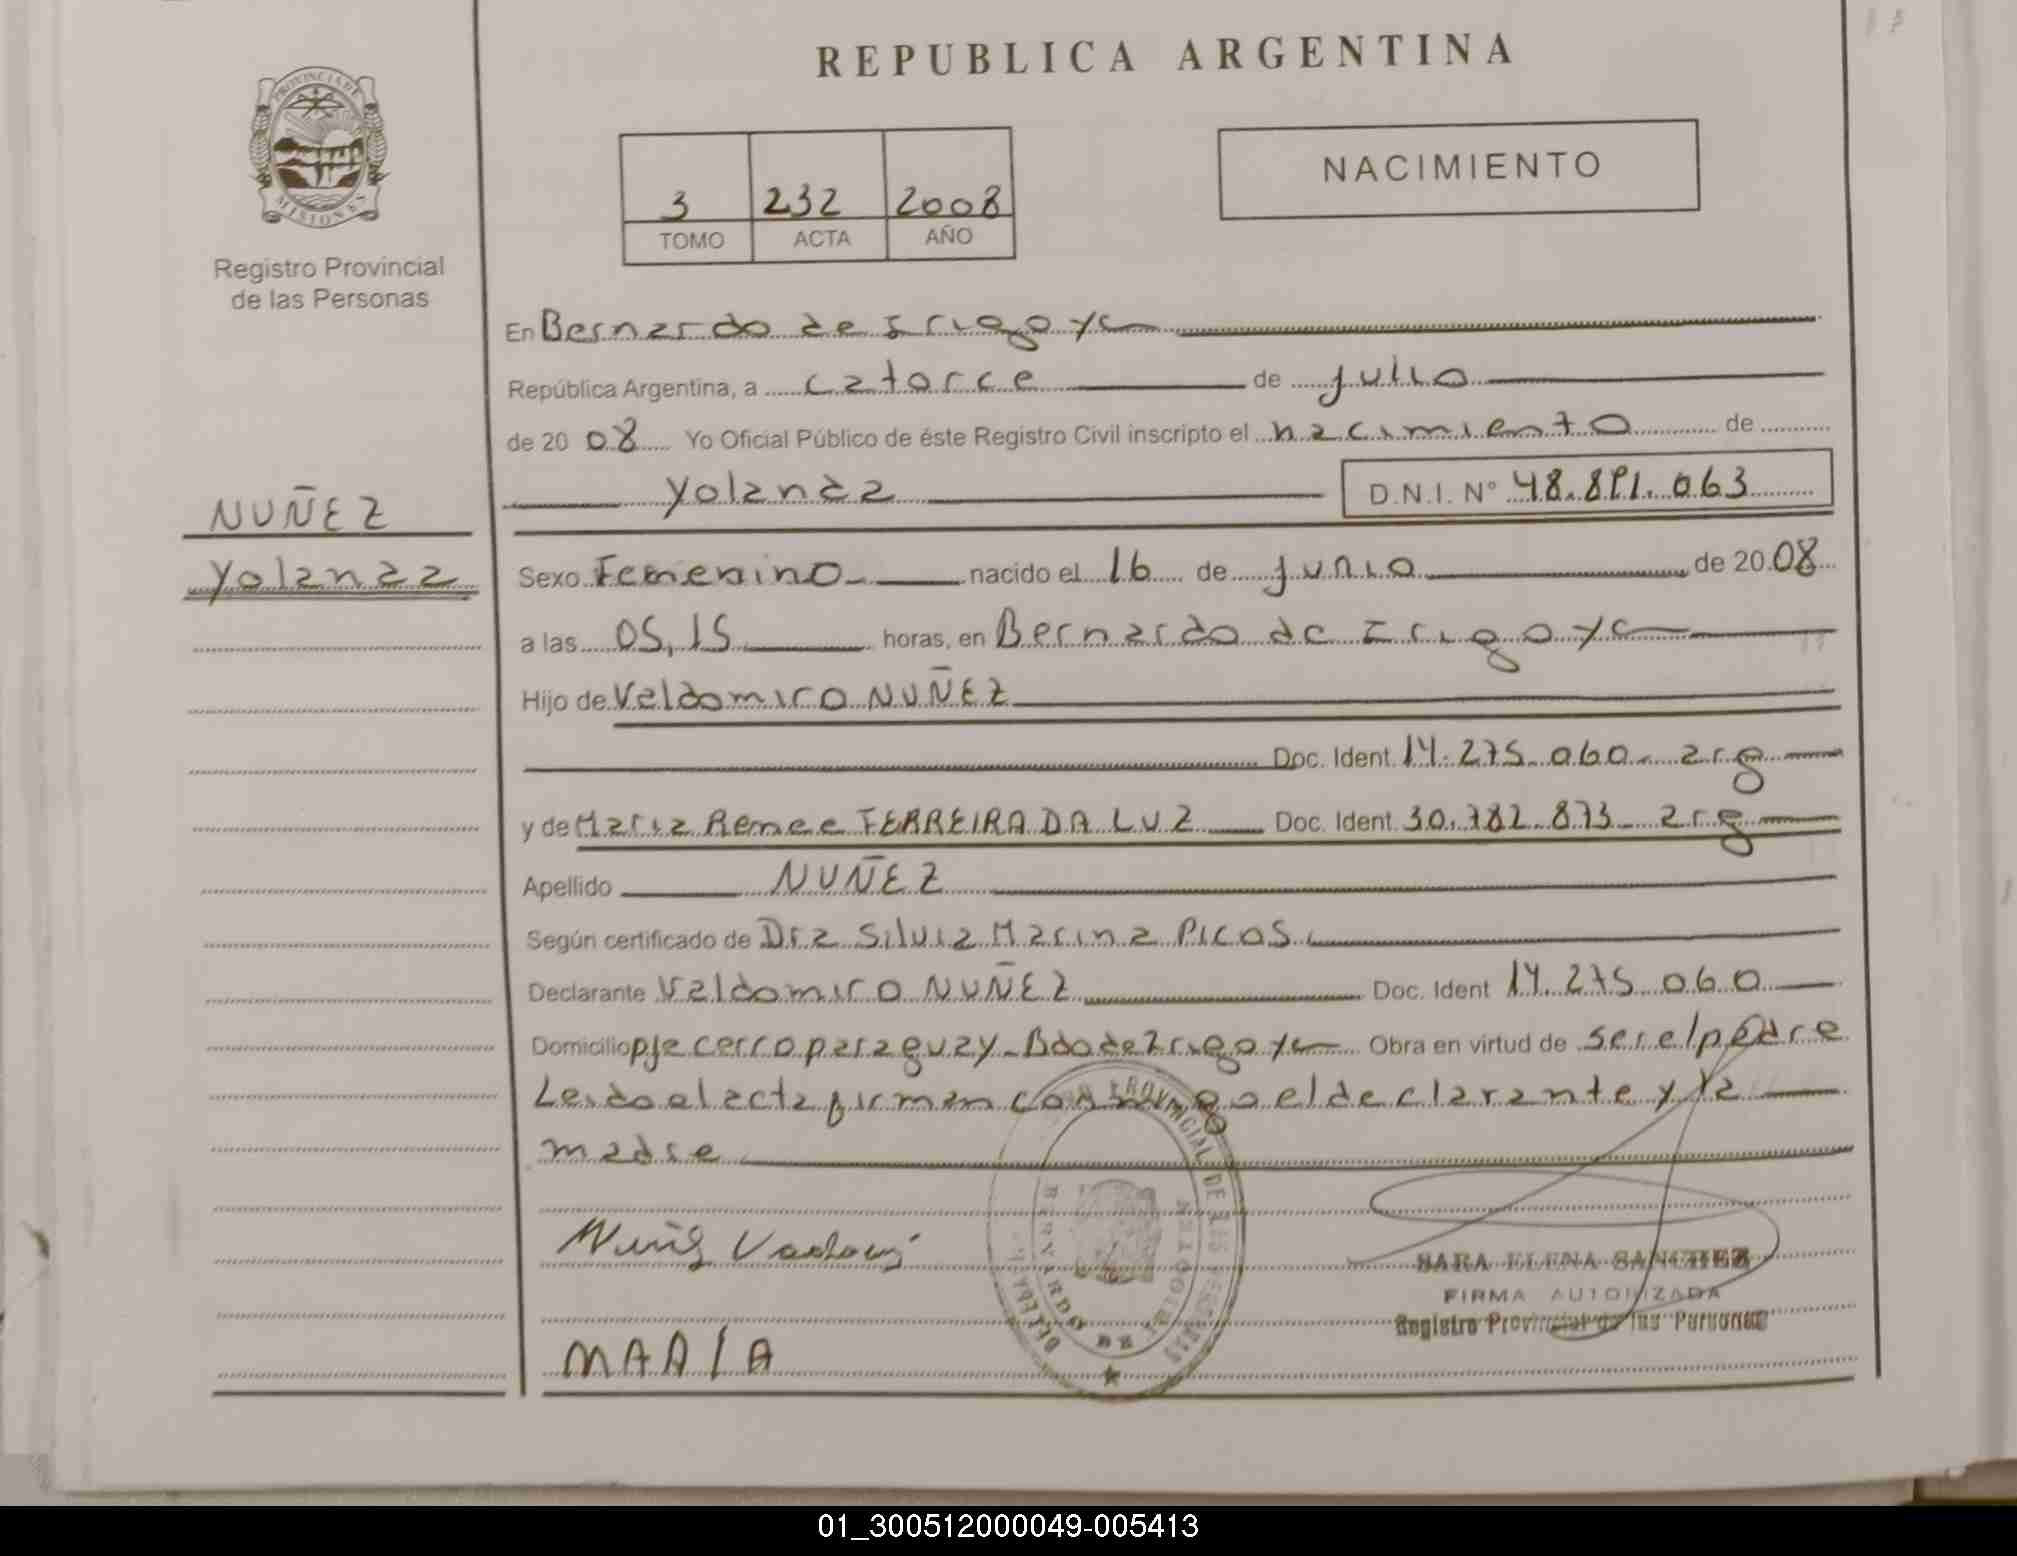 REPUBLICA ARGENTINA
PROVINCIA DE
MISIONES
Registro Provincial
de las Personas
3 232 2008
TOMO ACTA AÑO
NACIMIENTO
En Bernardo de Irigoye
República Argentina, a catorce de julio
de 20 08 Yo Oficial Público de éste Registro Civil inscripto el nacimiento de
Yolanda D.N.I. Nº 48.891.063
NUÑEZ
Yolanda
Sexo Femenino nacido el 16 de junio de 20 08
a las 05,15 horas, en Bernardo de Irigoye
Hijo de Valdomiro NUÑEZ
Doc. Ident. 14.275.060 arg
y de Maria Renee FERREIRA DA LUZ Doc. Ident. 30.782.873 arg
Apellido NUÑEZ
Según certificado de Dra Silvia Marina Picos
Declarante Valdomiro NUÑEZ Doc. Ident 14.275.060
Domicilio pje cerro paraguay - Bdo de Irigoye Obra en virtud de ser el padre
Leido el acta firman conmigo el declarante y la
madre
Nuñez
SARA ELENA SANCHEZ
FIRMA AUTORIZADA
Registro Provincial de las Personas
MARIA
01_300512000049-005413